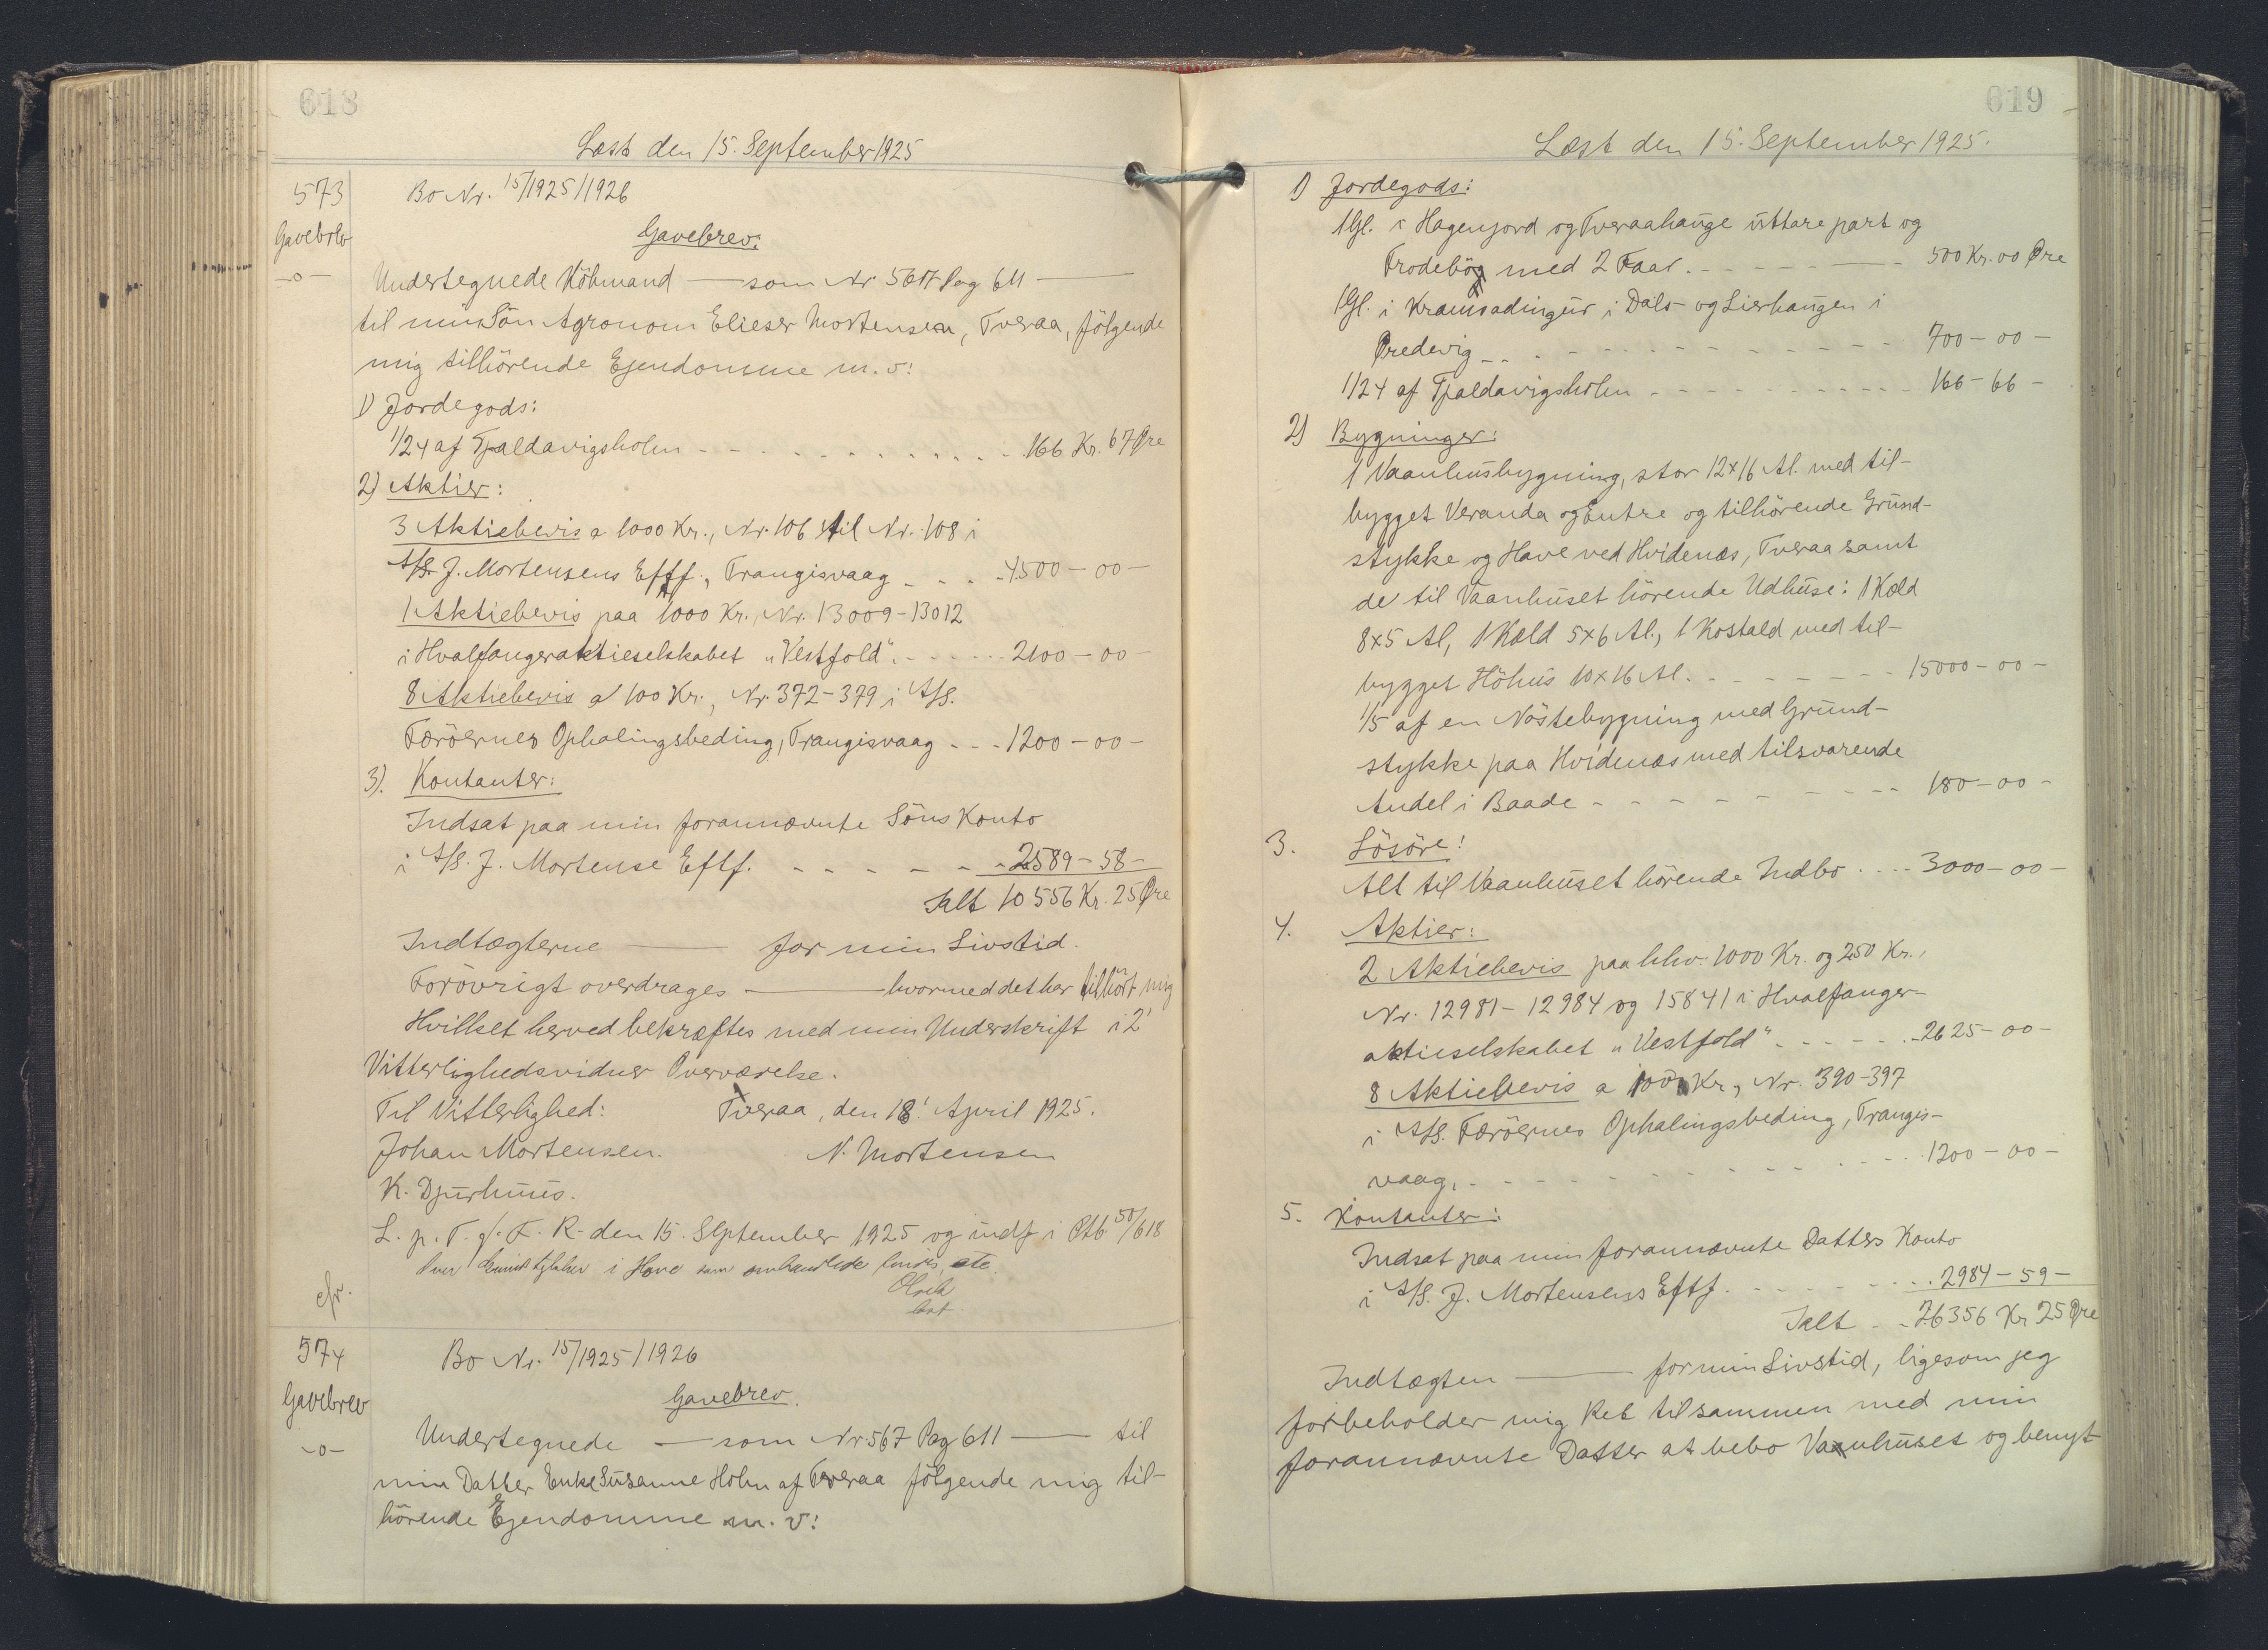 618
Læst den 15. September 1925
573
Gavebrev
-o-
Bo Nr. 15/1925/1926
Gavebrev.
Undertegnede Köbmand — som Nr 567 Pag 611 —
til min Sön Agronom Elieser Mortensen, Tveraa, fölgende
mig tilhörende Ejendomme m. v:
1) Jordegods:
1/24 af Tjaldavigsholm - - - 166 Kr. 67 Øre
2) Aktier:
3 Aktiebevis a 1000 Kr., Nr. 106 til Nr. 108 i
A/S. J. Mortensens Eftf., Trangisvaag - - - 4500-00-
1 Aktiebevis paa 1000 Kr., Nr. 13009-13012
i Hvalfangeraktieselskabet "Vestfold". - - - 2100-00-
8 Aktiebevis a 100 Kr., Nr. 372-379 i A/S.
Færöernes Ophalingsbeding, Trangisvaag - - - 1200-00-
3). Kontanter:
Indsat paa min forannævnte Söns Konto
i A/S. J. Mortense Eftf. - - - 2589-58-
Ialt 10556 Kr. 25 Øre
Indtægterne — for min Livstid.
Forövrigt overdrages — hvormed det har tilhört mig
Hvilket herved bekræftes med min Underskrift i 2'
Vitterlighedsvidner Overværelse.
Til Vitterlighed: Tveraa, den 18' April 1925.
Johan Mortensen. N. Mortensen
K. Djurhuus.
L. p. T. f. F. R. den 15. September 1925 og indf i Ptb 50/618
i Have som omhandlede findes, etc.
cfr.
574
Gavebrev
-o-
Bo Nr. 15/1925/1926
Gavebrev.
Undertegnede — som Nr 567 Pag 611 — til
min Datter Enke Susanne Holm af Tveraa fölgende mig til-
hörende Ejendomme m. v:
619
Læst den 15. September 1925.
1) Jordegods:
1 Gl. i Hagenjord og Tveraahauge uttare part og
Frodebög med 2 Faar. - - - 500 Kr. 00 Øre
1 Gl. i i Dals- og Lierhaugen i
Øredevig - - - 700-00-
1/24 af Tjaldavigsholm - - - 166-66-
2) Bygninger:
1 Vaanhusbygning, stor 12×16 Al. med til-
bygget Veranda og Entre og tilhörende Grund-
stykke og Have ved Hvidenæs, Tveraa samt
de til Vaanhuset hörende Udhuse: 1 Kæld
8×5 Al, 1 Kæld 5×6 Al., 1 Kostald med til-
bygget Höhus 10×16 Al. - - - 15000-00-
1/5 af en Nöstebygning med Grund-
stykke paa Hvidenæs med tilsvarende
Andel i Baade - - - 180-00-
3. Lösöre:
Alt til Vaanhuset hörende Indbo .... 3000-00-
4. Aktier:
2 Aktiebevis paa hhv. 1000 Kr. og 250 Kr.,
Nr. 12981-12984 og 15841 i Hvalfanger-
aktieselskabet "Vestfold" - - - 2625-00-
8 Aktiebevis a 100 Kr., Nr. 390-397
i A/S. Færöernes Ophalingsbeding, Trangis-
vaag, - - - 1200-00-
5. Kontanter:
Indsat paa min forannævnte Datters Konto
i A/S. J. Mortensens Eftf. - - - 2984-59-
Ialt - - 26356 Kr 25 Øre
Indtægten — for min Livstid, ligesom jeg
forbeholder mig Ret tilsammen med min
forannævnte Datter at bebo Vaanhuset og benyt